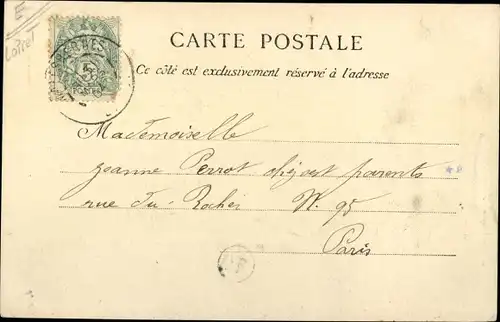 E
Loiret
CARTE POSTALE
Ce côté est exclusivement réservé à l'adresse
5
POSTES
Mademoiselle
Jeanne Perrot chez ses parents
rue du Rocher N. 95
Paris